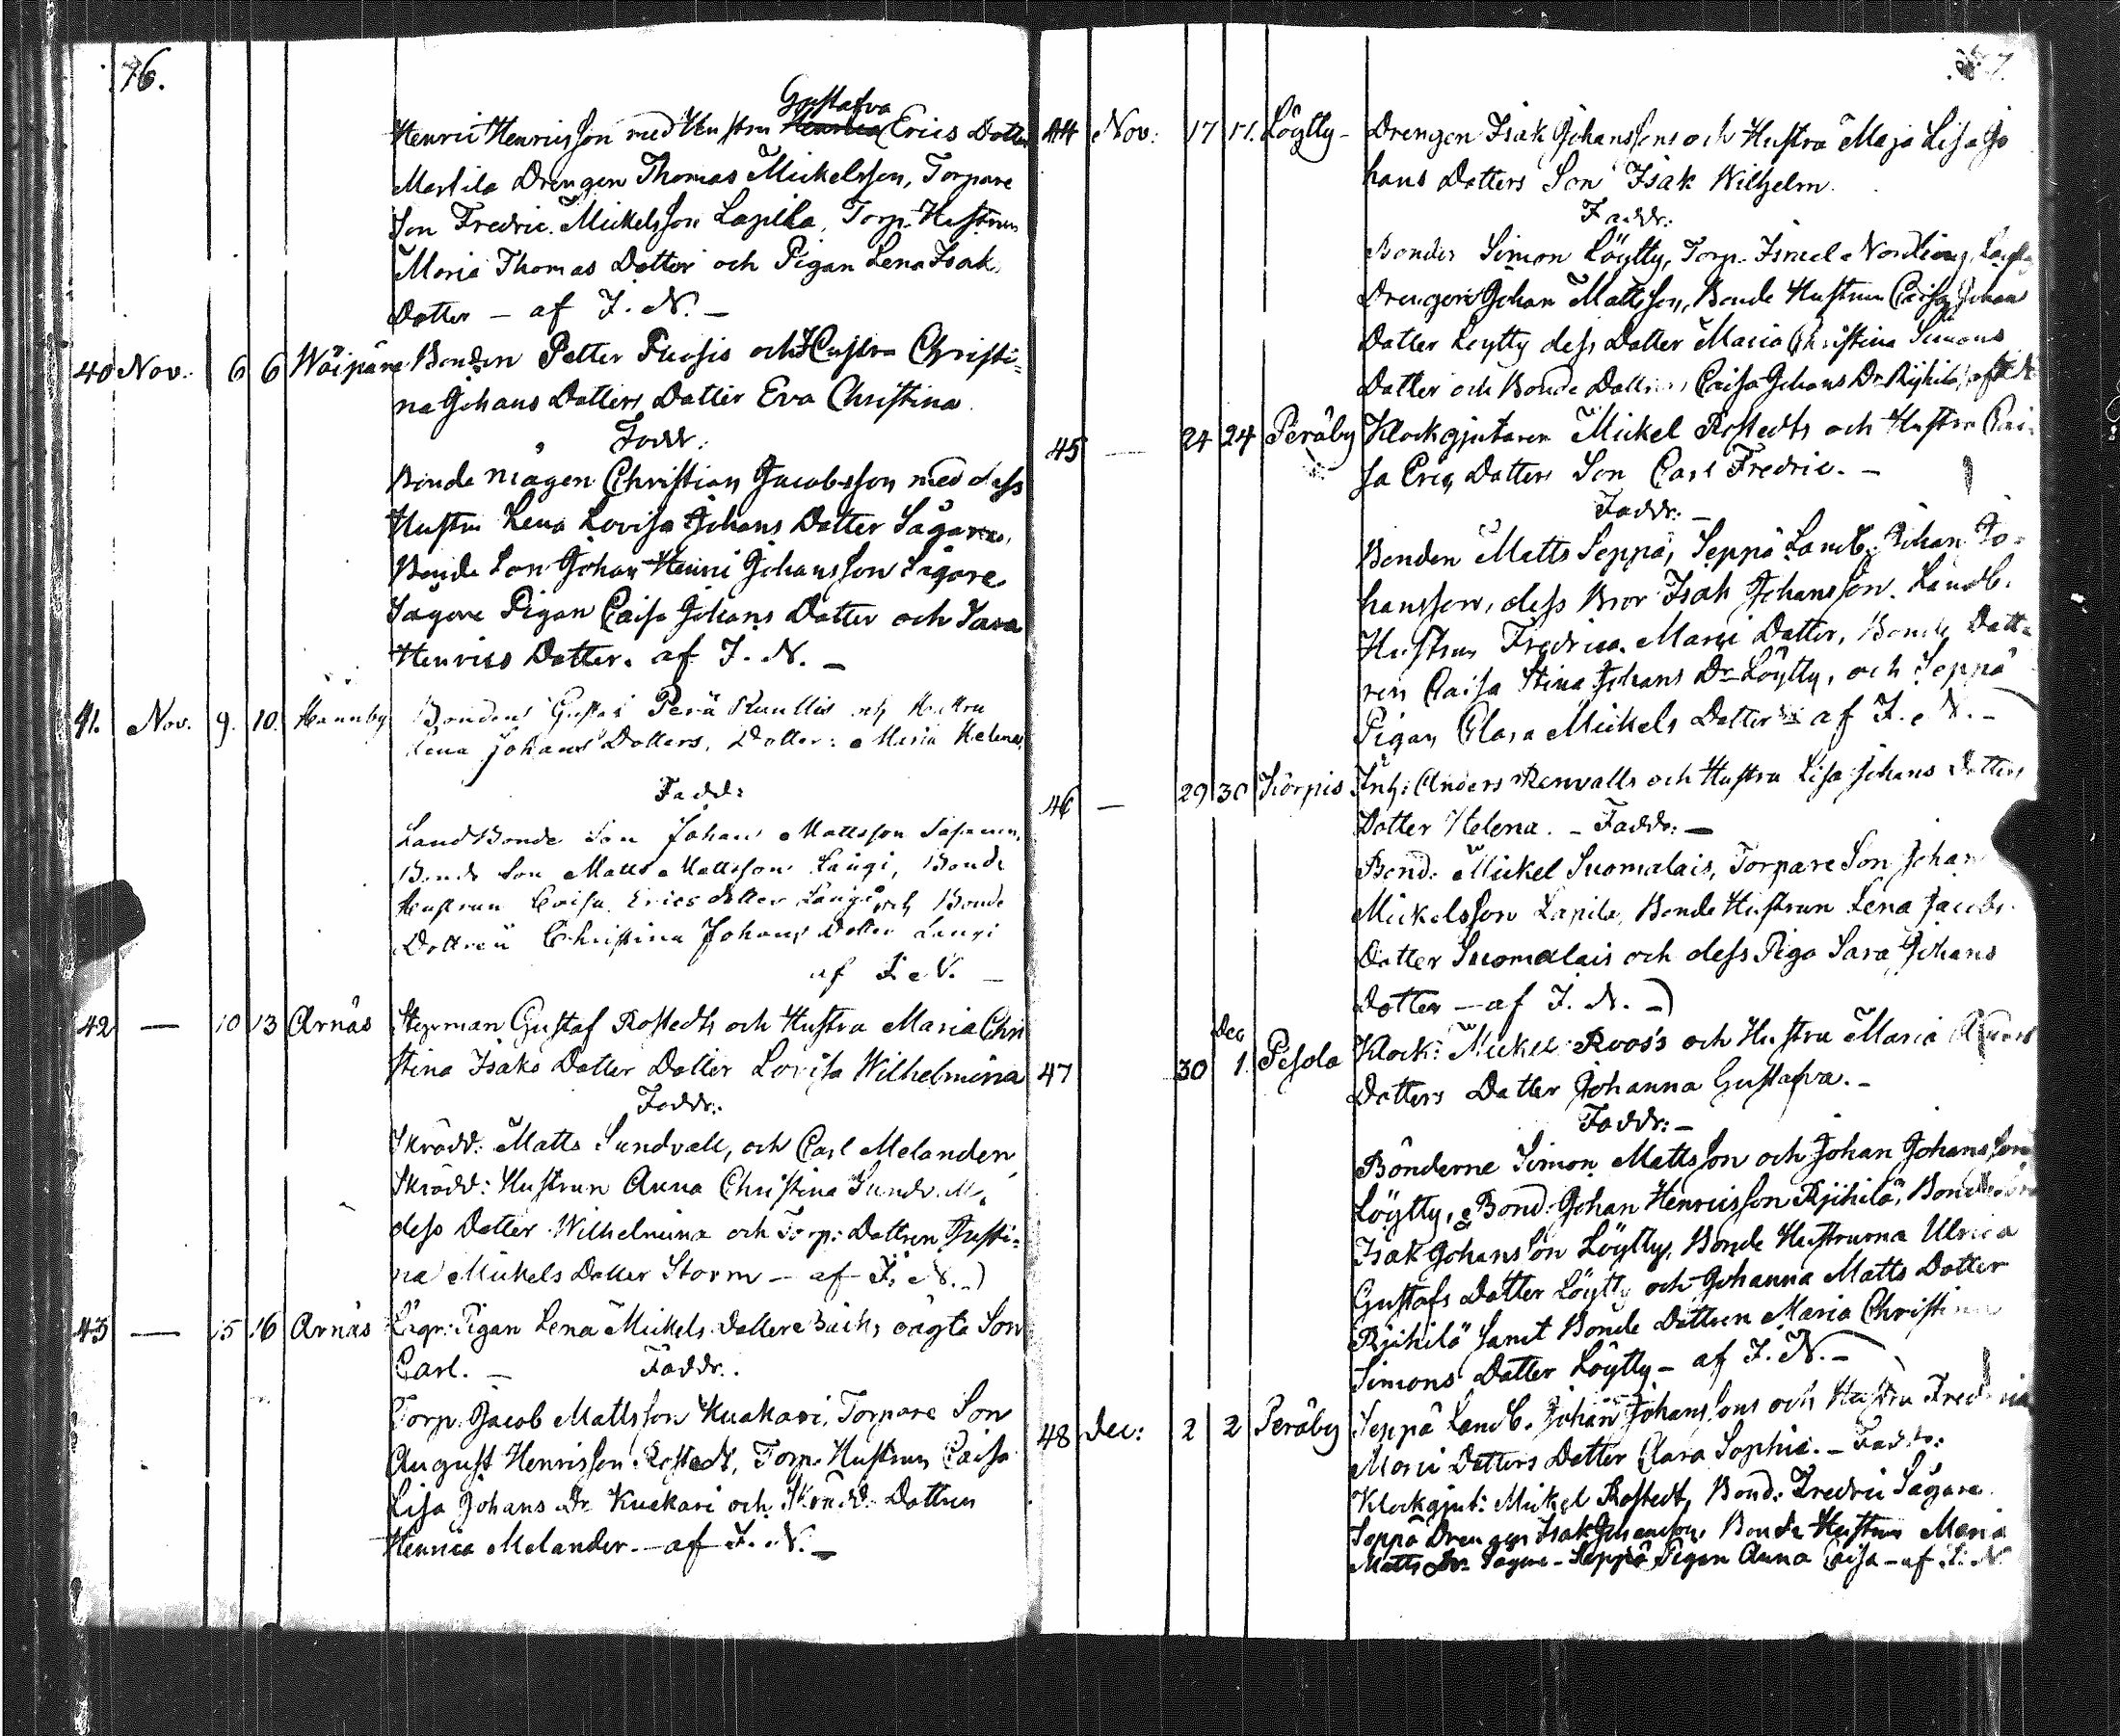 76.
Gustafva
Henric Henricsson med Hustru Henrica Erics Dotter
Martila Drengen Thomas Mickelsson, Torpare
Son Fredric Mickelsson Lapila, Torp. Hustrun
Maria Thomas Dotter och Pigan Lena Isak
Dotter – af J. N. –
40 Nov: 6 6 Wäipäre Bonden Petter Fuosis och Hustru Christi=
na Johans Dotters Dotter Eva Christina
Fadd:
Bonde mågen Christian Jacobsson med dess
Hustru Lena Lovisa Johans Dotter Sägare,
Bonde Son Johan Henric Johansson Sägare
Sägare Pigan Caisa Johans Dotter och Sara
Henrics Dotter. af J. N. –
41. Nov. 9. 10. Hannby Bondens Gustaf Perä Kullis och Hustru
Lena Johans Dotters, Dotter: Maria Helena
Fadd:
LandBonde Son Johan Mattsson
Bonde Son Matts Mattsson Laugi, Bonde
Hustrun Lovisa Erics dotter Laugi och Bonde
Dottren Christina Johans Dotter Laugi
af J. N. –
42 – 10 13 Arnäs Styrman Gustaf Rostedts och Hustru Maria Chri
stina Isaks Dotter Dotter Lovisa Wilhelmina
Faddr:
Skrädd: Matts Sundvall, och Carl Melander
Skrädd: Hustrun Anna Christina Sundv.
dess Dotter Wilhelmina och Torp: Dottren Justi=
na Mickels Dotter Storm – af J. N. –)
43 – 15 16 Arnäs Lägr: Pigan Lena Mickels Dotters Bäcks oägta Son
Carl. – Faddr.
Torp. Jacob Mattsson Kuakari, Torpare Son
August Henricsson Rostedt, Torp. Hustrun Caisa
Lisa Johans Dr. Kuakari och Skrädd: Dottren
Henrica Melander. – af J. N. –
44 Nov: 17 17. Löytty – Drengen Isak Johanssons och Hustru Maja Lisa Jo
hans Dotters Son Isak Wilhelm.
Faddr:
Bonden Simon Löytty, Torp. Israel Nordling,
Drengen Johan Mattsson, Bonde Hustrun Caisa Johans
Dotter Löytty dess Dotter Maria Christina Simons
Dotter och Bonde Dottren Caisa Johans Dr Rijhilä, af
45 – 24 24 Peräby Klockgjutaren Mickel Rostedts och Hustru Cai=
sa Erics Dotters Son Carl Fredric. –
Faddr: –
Bonden Matts Seppä, Seppä Landb: Johan Jo=
hansson, dess Bror Isak Johansson. Landb.
Hustrun Fredrica Marci Dotter, Bonde Dott=
ren Caisa Stina Johans Dr Löytty, och Seppä
Pigan Clara Mickels Dotter – af J. N. –
46 – 29 30 Körpis Inh: Anders Renvalls och Hustru Lisa Johans Dotters
Dotter Helena. – Faddr: –
Bond: Mickel Suomalais, Torpare Son Johan
Mickelsson Lapila, Bonde Hustrun Lena Jacobs
Dotter Suomalais och dess Piga Sara Johans
Dotter – af J. N. –)
47 30 Dec 1. Pesola Klock: Mickel Roos's och Hustru Maria
Dotters Dotter Johanna Gustafva. –
Faddr: –
Bönderne Simon Mattsson och Johan Johansson
Löytty, Bond: Johan Henricsson Rjihilä,
Isak Johansson Löytty, Bonde Hustrurna Ulrica
Gustafs Dotter Löytty och Johanna Matts Dotter
Rjihilä samt Bonde Dottren Maria Christina
Simons Dotter Löytty – af J. N. –
48 Dec: 2 2 Peräby Seppä Landb. Johan Johanssons och Hustru Fredrica
Marci Dotters Dotter Clara Sophia. – Faddr:
Klockgjut: Mickel Rostedt, Bond: Fredric Sägare.
Seppä Drengen Isak Johansson, Bonde Hustrun Maria
Matts Dr. Sägare – Seppä Pigan Anna Caisa – af J. N.